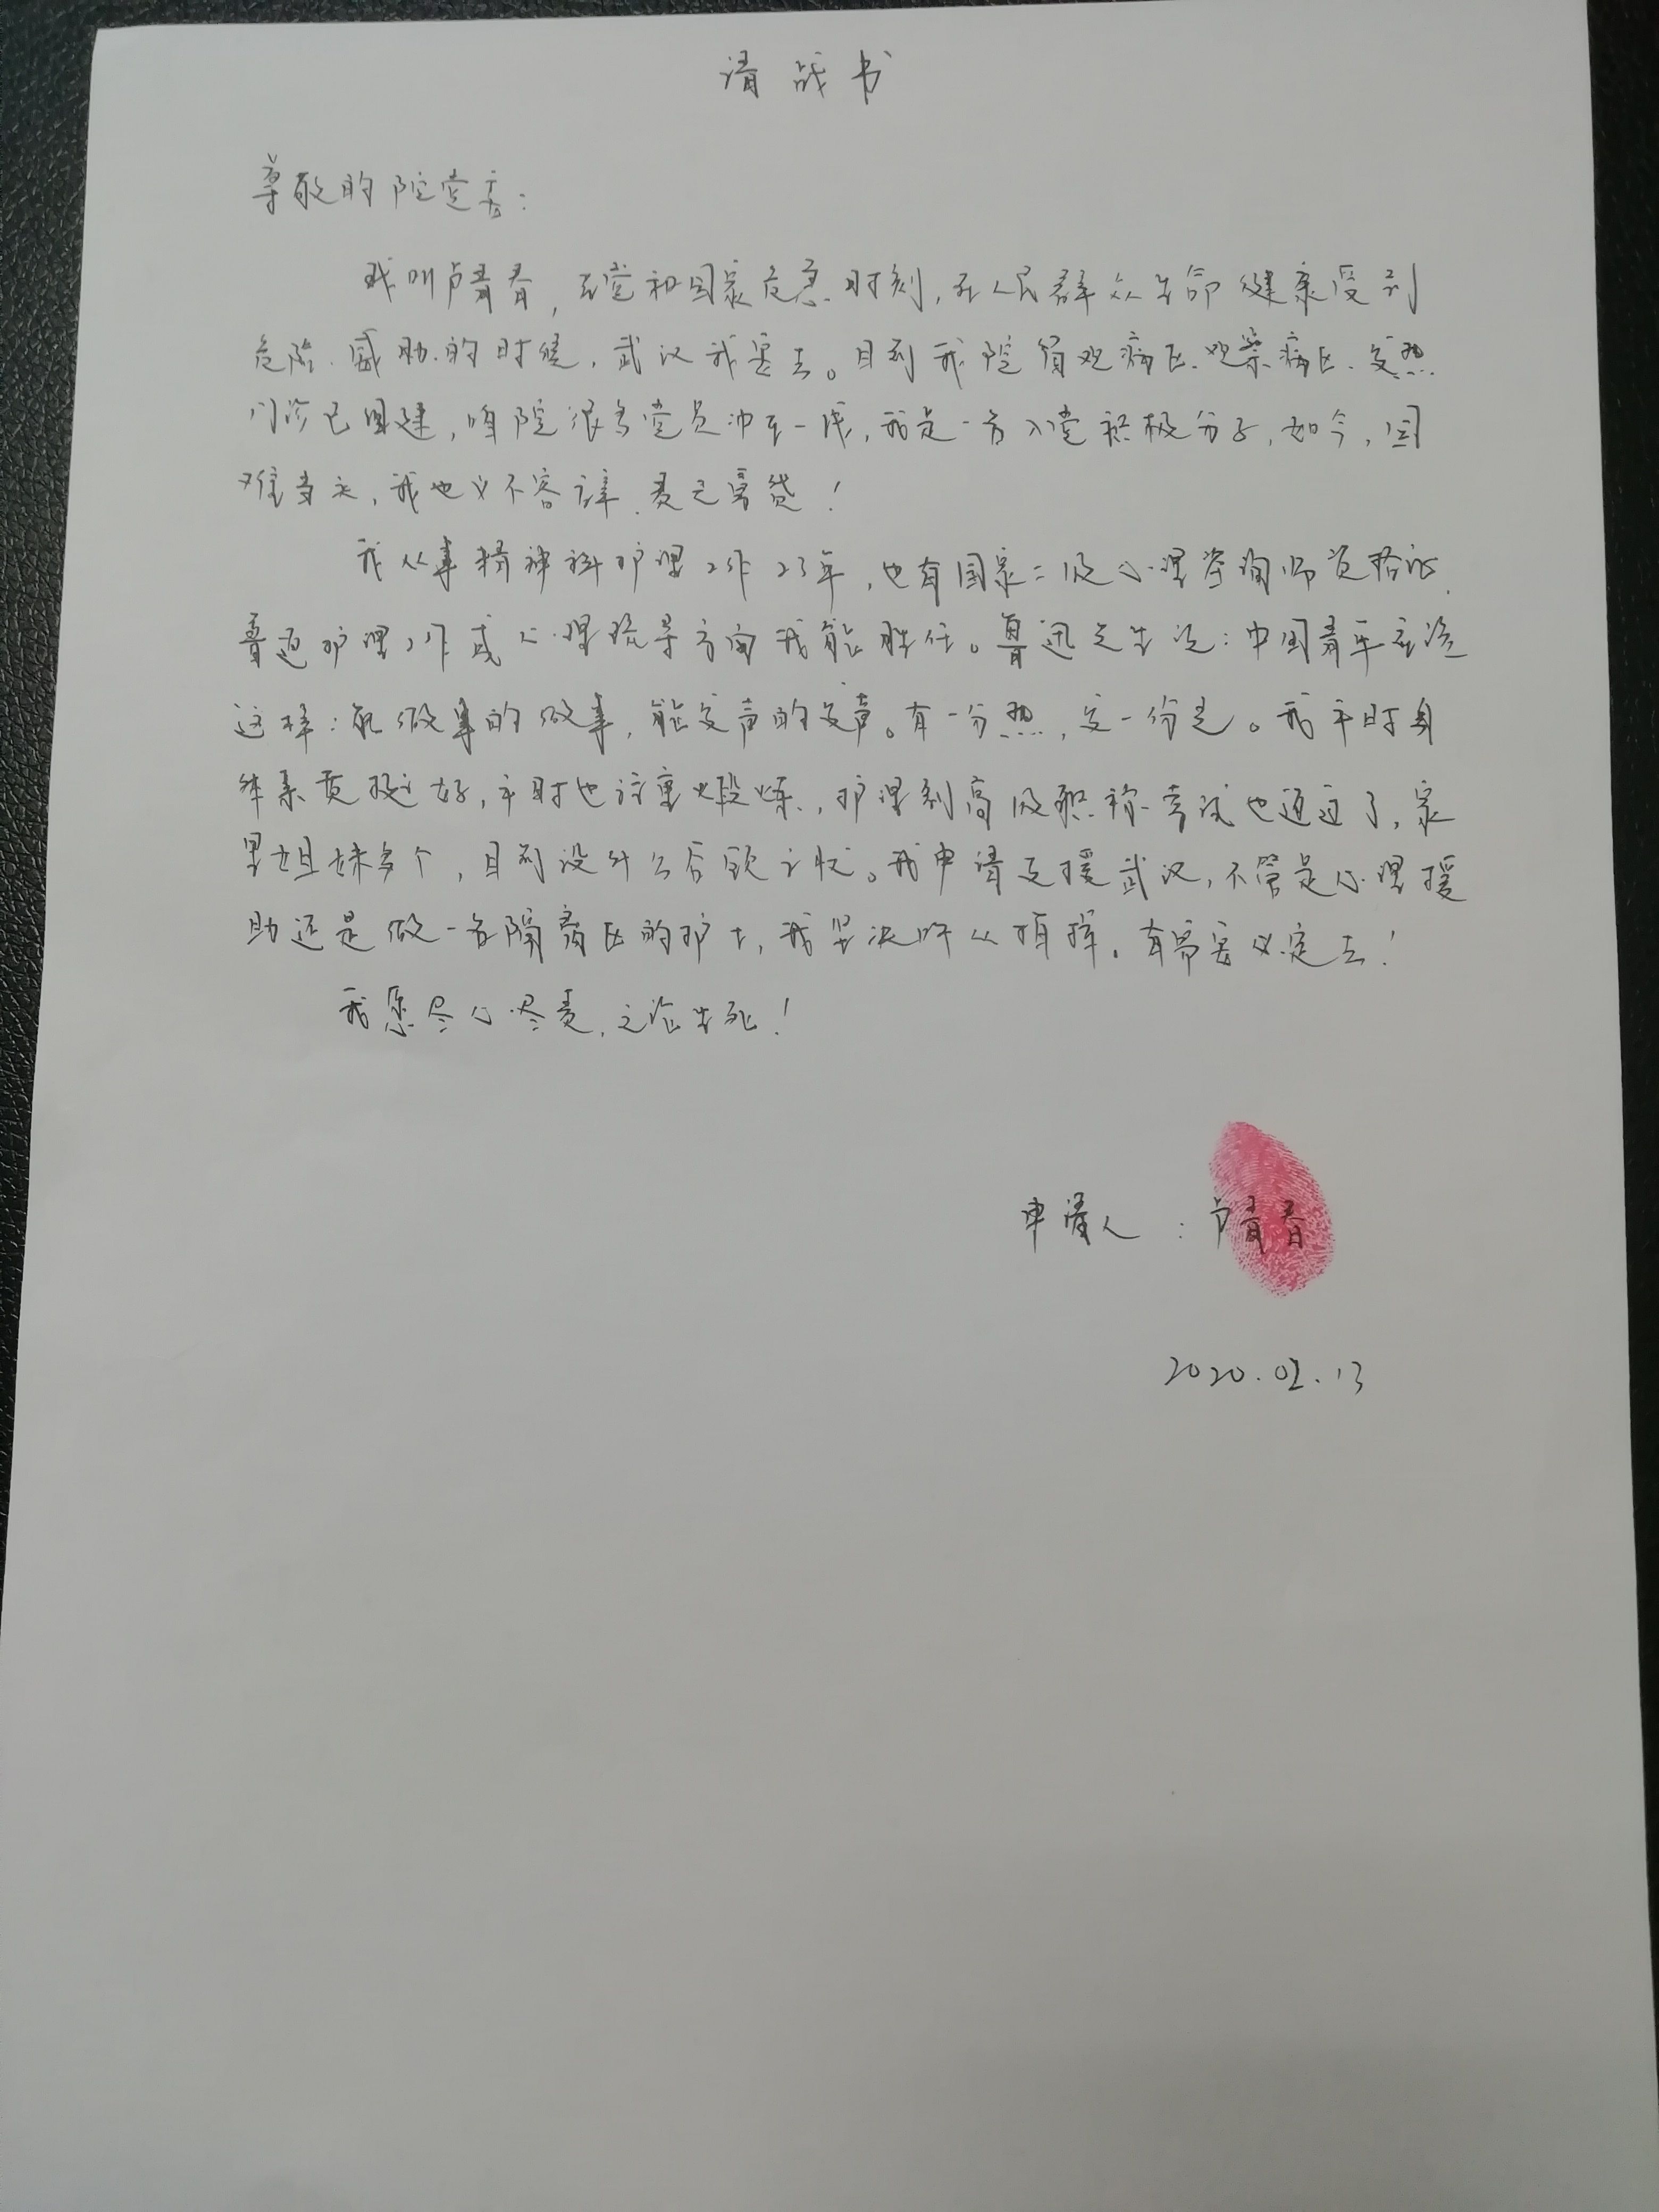 请战书
尊敬的院党委：
我叫卢青春，在党和国家危急时刻，在人民群众生命健康受到
危险、威胁的时候，武汉我要去。目前我院留观病区、观察病区、发热
门诊已组建，咱院很多党员冲在一线，我是一名入党积极分子，如今，国
难当头，我也义不容辞、责无旁贷！
我从事精神科护理工作23年，也有国家二级心理咨询师资格证，
普通护理工作或心理疏导方面我能胜任。鲁迅先生说：中国青年应该
这样：能做事的做事，能发声的发声。有一分热，发一份光。我平时身
体素质挺好，平时也注重火段炼，护理副高级职称考试也通过了，家
里姐妹多个，目前没什么后顾之忧。我申请支援武汉，不管是心理援
助还是做一名隔离区的护士，我坚决听从指挥。有需要必定去！
我愿尽心尽责，无论生死！
申请人：卢青春
2020.02.13